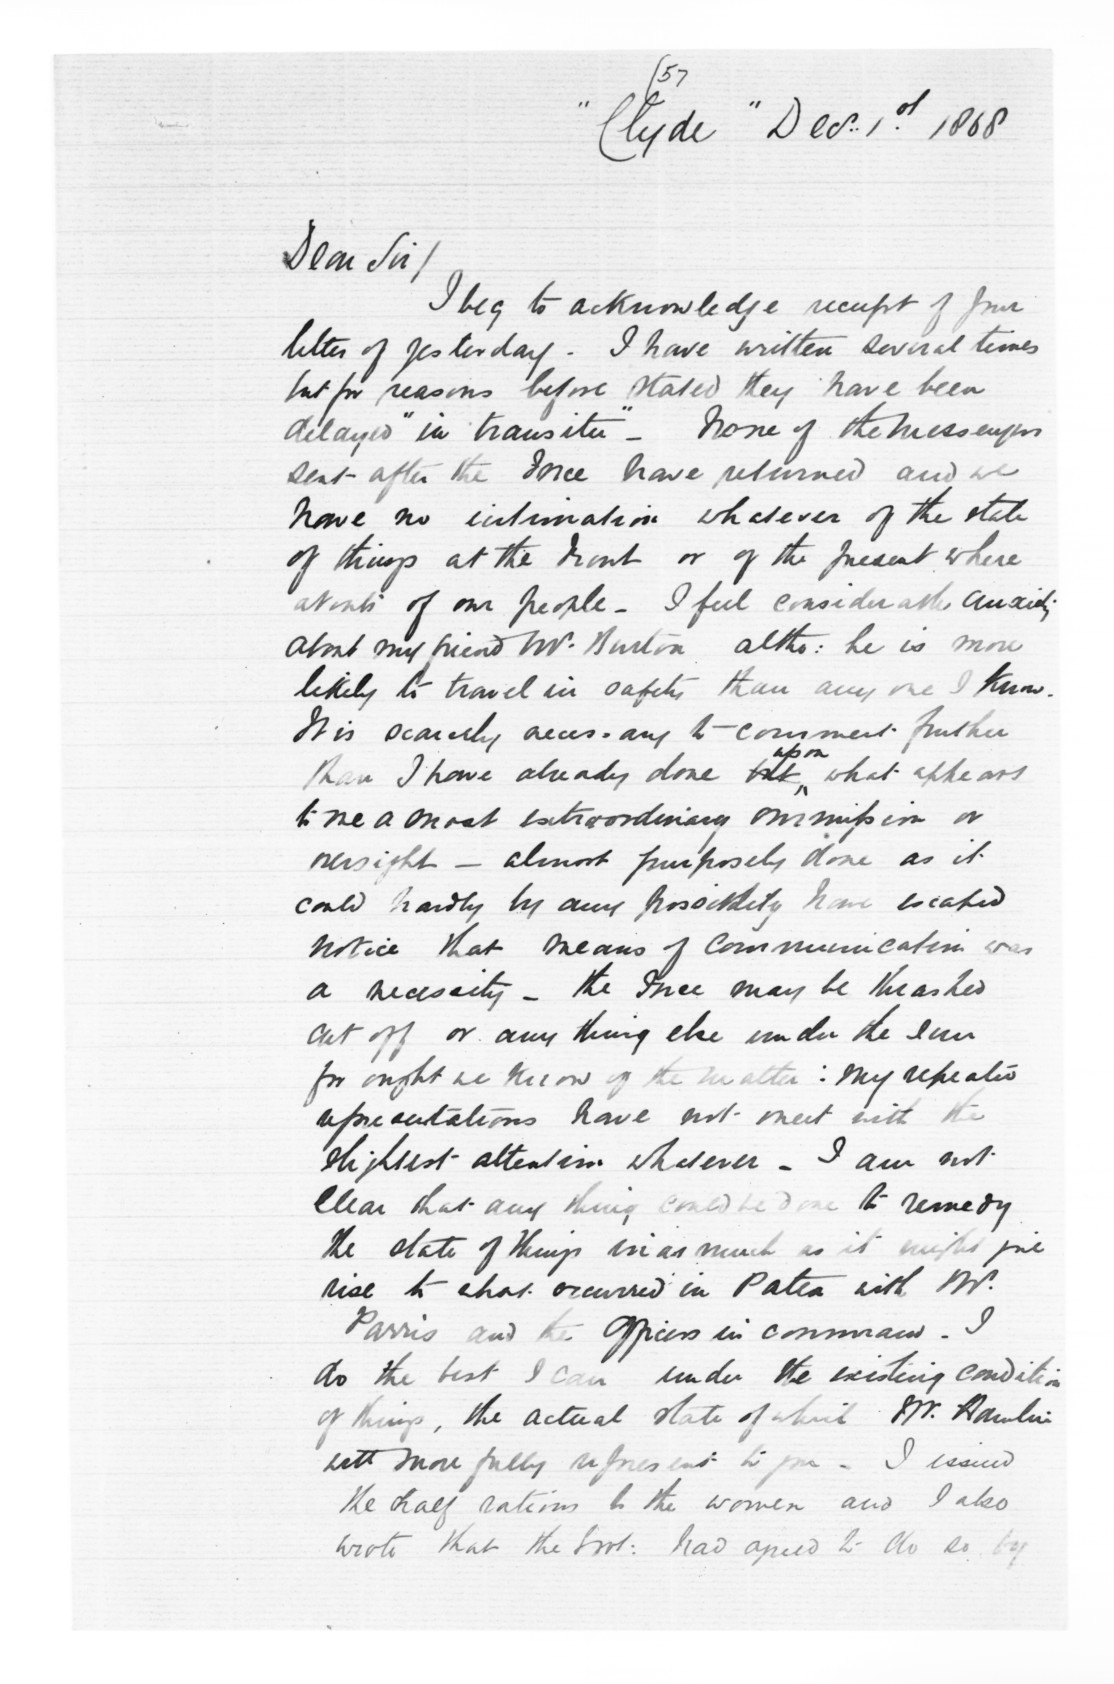 (57
"Clyde" Decr. 1st 1868
Dear Sir/
I beg to acknowledge receipt of your
letter of yesterday. I have written several times
but for reasons before stated they have been
delayed "in transitu" - None of the Messengers
sent after the Force have returned and we
have no intimation whatever of the state
of things at the Front or of the present where
abouts of our people - I feel considerable anxiety
about my friend Mr. Burton altho: he is more
likely to travel in safety than any one I know.
It is scarcely necessary to comment further
than I have already done but upon what appears
to me a most extraordinary ommission or
oversight - almost purposely done as it
could hardly by any possibility have escaped
notice that means of communication was
a necessity - the Force may be thrashed
cut off or any thing else under the Sun
for ought we know of the matter: My repeated
representations have not meet with the
slightest attention whatever - I am not
Clear that any thing could be done to remedy
the state of things in as much as it might give
rise to what occurred in Patea with Mr.
Parris and the Officers in command - I
do the best I can under the existing condition
of things, the actual state of which Mr. Hamlin
will more fully represent to you - I issued
the half rations to the women and I also
wrote that the Govt: had agreed to do so by